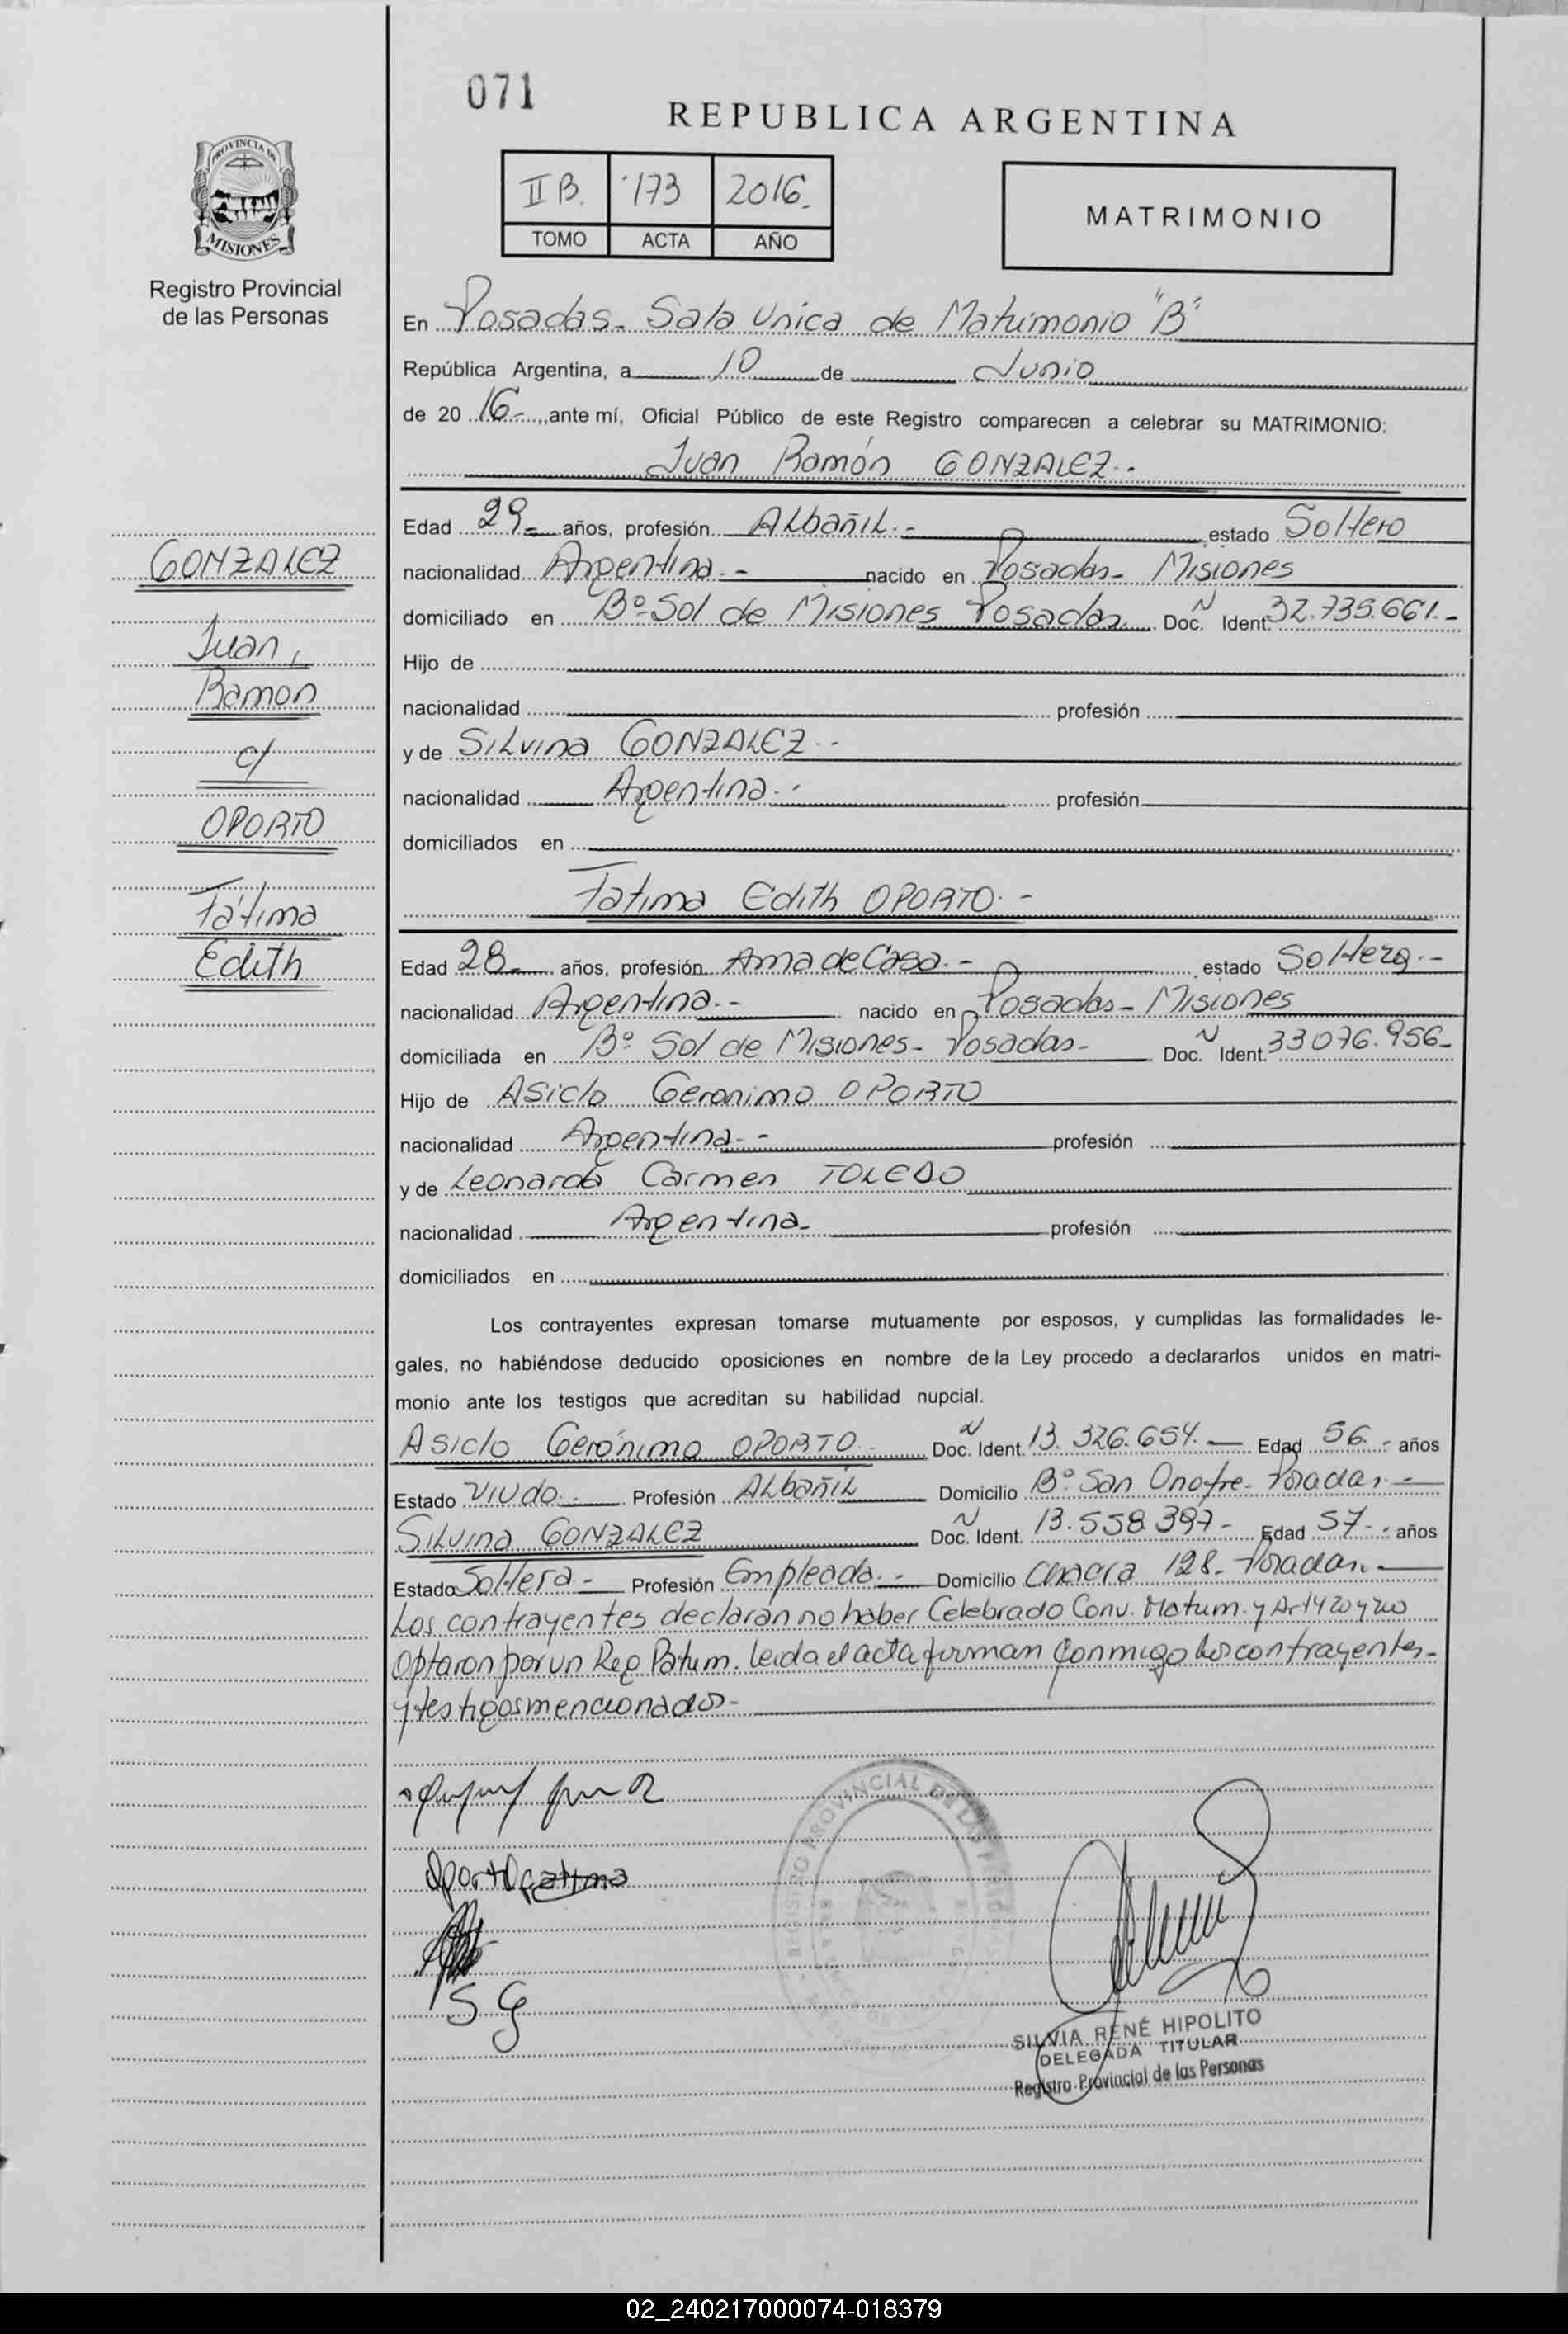 071
REPUBLICA ARGENTINA
PROVINCIA DE
MISIONES
Registro Provincial
de las Personas
II B. 173 2016.
TOMO ACTA AÑO
MATRIMONIO
En Posadas - Sala Unica de Matrimonio "B"
República Argentina, a 10 de Junio
de 20 16 - , ante mí, Oficial Público de este Registro comparecen a celebrar su MATRIMONIO:
Juan Ramón GONZALEZ. -
Edad 29 - años, profesión ALbañiL. - estado Soltero
nacionalidad Argentina. - nacido en Posadas - Misiones
domiciliado en Bº Sol de Misiones Posadas Doc. N Ident. 32.735.661. -
Hijo de
nacionalidad profesión
y de Silvina GONZALEZ. -
nacionalidad Argentina. - profesión
domiciliados en
Fatima Edith OPORTO. -
Edad 28 - años, profesión Ama de Casa. - estado Soltera. -
nacionalidad Argentina. - nacido en Posadas - Misiones
domiciliada en Bº Sol de Misiones - Posadas - Doc. N Ident. 33076.956 -
Hijo de Asiclo Geronimo OPORTO
nacionalidad Argentina. - profesión
y de Leonarda Carmen TOLEDO
nacionalidad Argentina - profesión
domiciliados en
Los contrayentes expresan tomarse mutuamente por esposos, y cumplidas las formalidades le-
gales, no habiéndose deducido oposiciones en nombre de la Ley procedo a declararlos unidos en matri-
monio ante los testigos que acreditan su habilidad nupcial.
Asiclo Gerónimo OPORTO - Doc. N Ident. 13.326.654. - Edad 56. - años
Estado Viudo. - Profesión ALbañiL Domicilio Bº San Onofre - Posadas. -
Silvina GONZALEZ Doc. N Ident. 13.558.397 - Edad 57 - . años
Estado Soltera - Profesión Empleada. - Domicilio Chacra 128 - Posadas. -
Los contrayentes declaran no haber Celebrado Conv. Matrim. y Art 420 y no
optaron por un Reg Patrim. Leida el acta firman conmigo los contrayentes -
y testigos mencionados -
Oporto Fatima
S G
REGISTRO PROVINCIAL DE LAS PERSONAS
SILVIA RENÉ HIPOLITO
DELEGADA TITULAR
Registro Provincial de las Personas
GONZALEZ
Juan,
Ramon
c/
OPORTO
Fátima
Edith
02_240217000074-018379